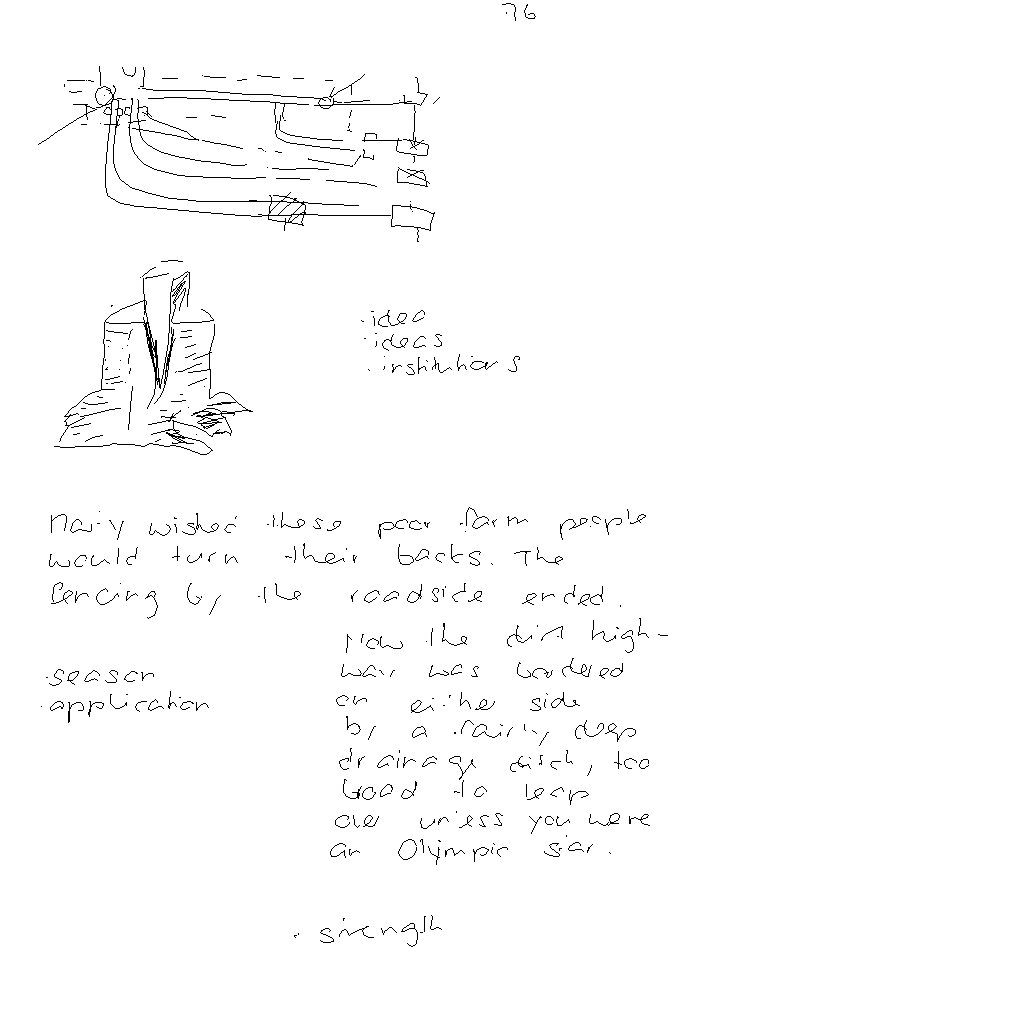 76
·idea
·ideas
·institutions
Nairy wished these poor farm people
would turn their backs. The
fencing by the roadside ended.
Now the dirt high-
way was bordered
on either side
by a fairly deep
drainage ditch, too
broad to leap
over unless you were
an Olympic star.
·season
·application
· strength